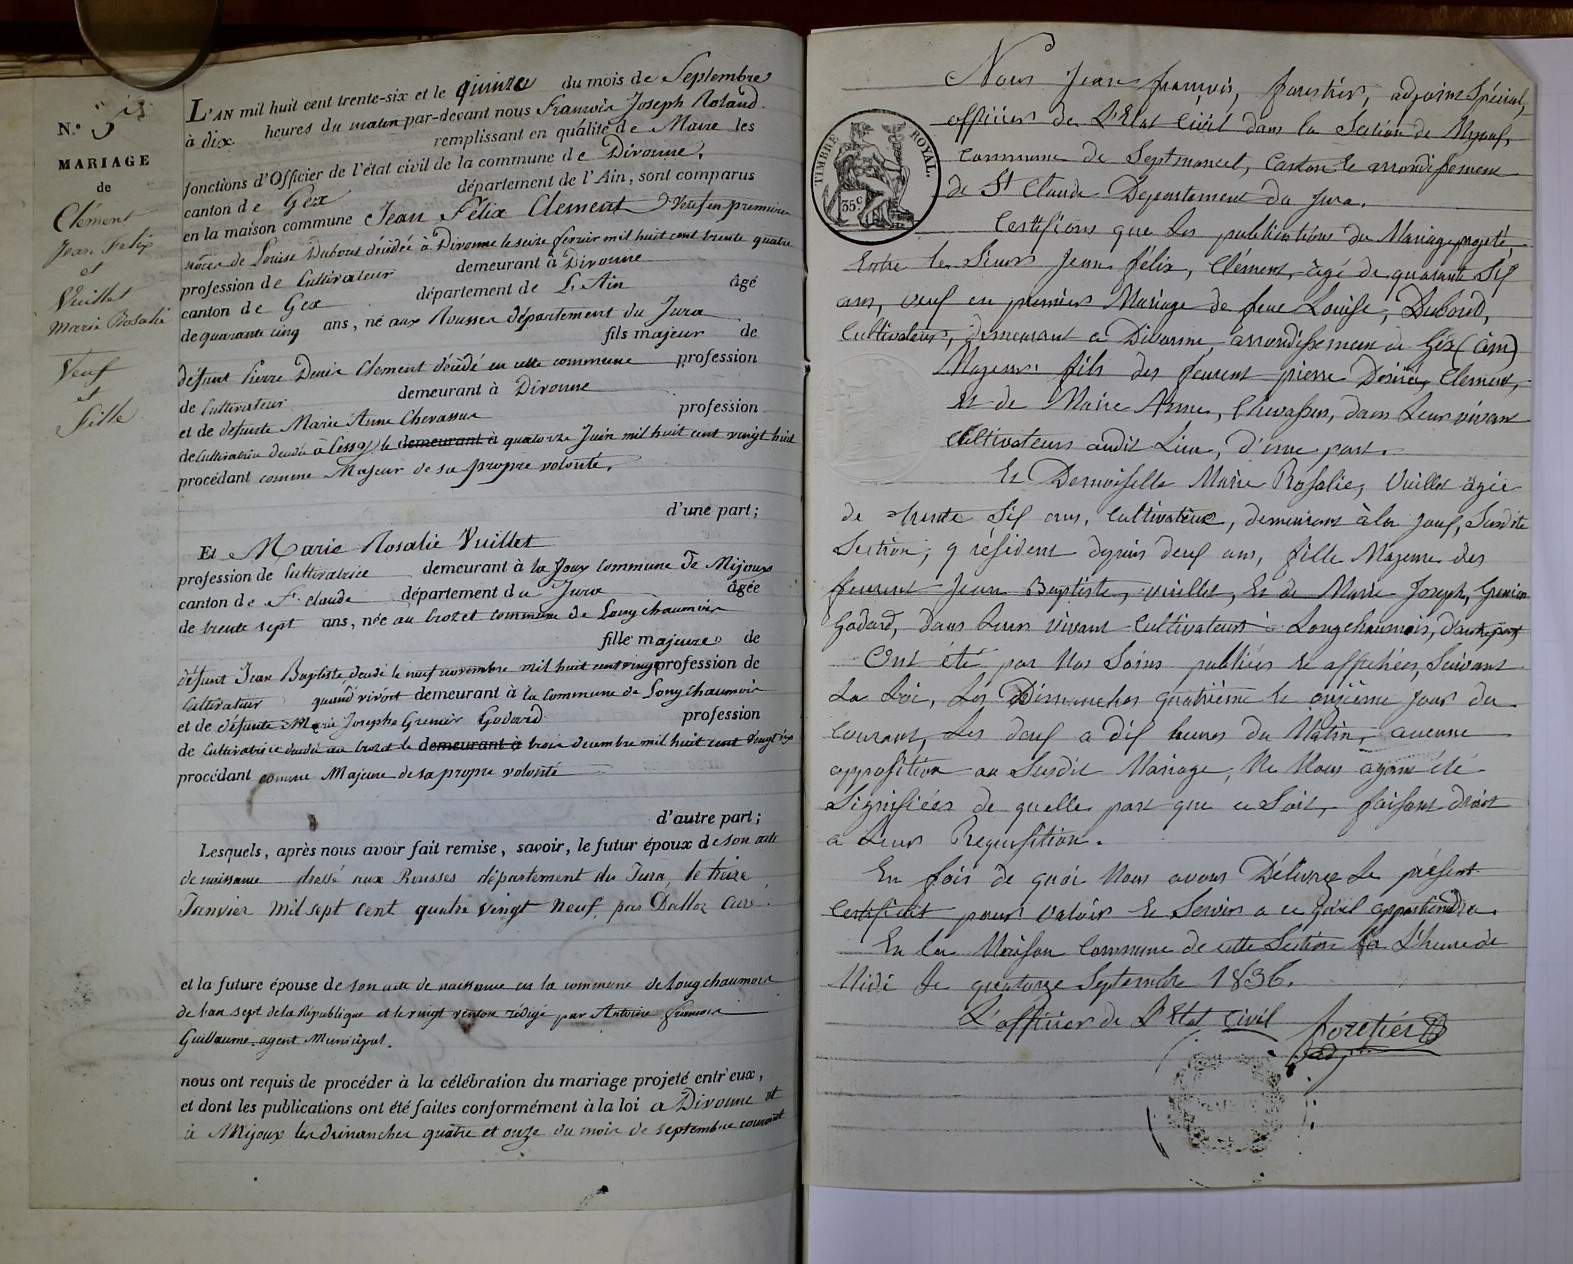 N.º 5
MARIAGE
de
Clément
Jean Felix
et
Vuillet
Marie Rosalie
Veuf
et
Fille
L'AN mil huit cent trente-six et le quinze du mois de Septembre
à dix heures du matin par-devant nous François Joseph Roland
remplissant en qualité de Maire les
fonctions d'Officier de l'état civil de la commune de Divonne,
canton de Gex département de l'Ain, sont comparus
en la maison commune Jean Félix Clement Veuf en premiere
nôces de Louise Dubout décédée à Divonne le seize fevrier mil huit cent trente quatre
profession de Cultivateur demeurant à Divonne
canton de Gex département de L'Ain âgé
de quarante cinq ans, né aux Rousses département du Jura
fils majeur de
défunt Pierre Denis Clement décédé en cette commune profession
de Cultivateur demeurant à Divonne
et de défunte Marie Anne Chevassus profession
de Cultivatrice décédée à Cessy le demeurant à quatorze Juin mil huit cent vingt huit
procédant comme Majeur de sa propre volonté.
d'une part;
Et Marie Rosalie Vuillet
profession de Cultivatrice demeurant à la Joux commune de Mijoux
canton de St Claude département du Jura âgée
de trente sept ans, née au Crozet commune de Longchaumois
fille majeure de
défunt Jean Baptiste, décédé le neuf novembre mil huit cent vingt profession de
Cultivateur quand vivant demeurant à la commune de Longchaumois
et de défunte Marie Josephe Grenier Godard profession
de Cultivatrice décédée au Crozet le demeurant à trois decembre mil huit cent vingt
procédant comme Majeure de sa propre volonté
d'autre part;
Lesquels, après nous avoir fait remise, savoir, le futur époux de son acte
de naissance dressé aux Rousses département du Jura, le treize
Janvier mil sept cent quatre vingt neuf, par Dalloz curé.
et la future épouse de son acte de naissance en la commune de Longchaumois
de l'an sept de la République et le vingt ventose rédigé par Antoine François
Guillaume, agent Municipal.
nous ont requis de procéder à la célébration du mariage projeté entr'eux,
et dont les publications ont été faites conformément à la loi a Divonne et
à Mijoux les dimanches quatre et onze du mois de septembre courant
TIMBRE ROYAL.
35 c.
Nous Jean françois, forestier, adjoint Spécial,
officier de L'Etat Civil dans la Section de Mijoux,
Commune de Septmoncel, Canton et arrondissement
de St Claude Département du Jura.
Certifions que Les publications du Mariage projeté
Entre le Sieur Jean félix, Clément, âgé de quarante Six
ans, veuf en premier Mariage de feue Louise, Duboud,
Cultivateur, demeurant a Divonne, arrondissement de Géx (ain)
Majeur fils des feurent pierre Désirez Clement,
et de Marie Anne, Chevassus, dans Leur vivant
Cultivateurs audit Lieu, d'une part.
Et Demoiselle Marie Rosalie, Vuillet âgée
de trente Six ans, Cultivatrice, demeurant à la joux, Susdite
Section, y résident depuis deux ans, fille Majeure des
feurent Jean Baptiste, vuillet, Et de Marie Joseph, Grenier
Godard, dans Leur vivant Cultivateurs à Longchaumois, d'autre part
Ont été par Nos Soins publiées et affichées, Suivant
La Loi, Les Dimanches quatrième et onzième jour du
Courant, Les deux a dix heures du Matin, aucune
opposition au Susdit Mariage, Ne Nous ayant été
Signifiées de quelle part que ce Soit, faisant droit
a Leur Requisition.
En fois de quoi Nous avons Délivrez Le présent
Certificat pour valoir Et Servir a ce qu'il appartiendra.
En la Maison Commune de cette Section a L'heure de
Midi Le quatorze Septembre 1836.
L'officier de L'Etat Civil forestier
adj